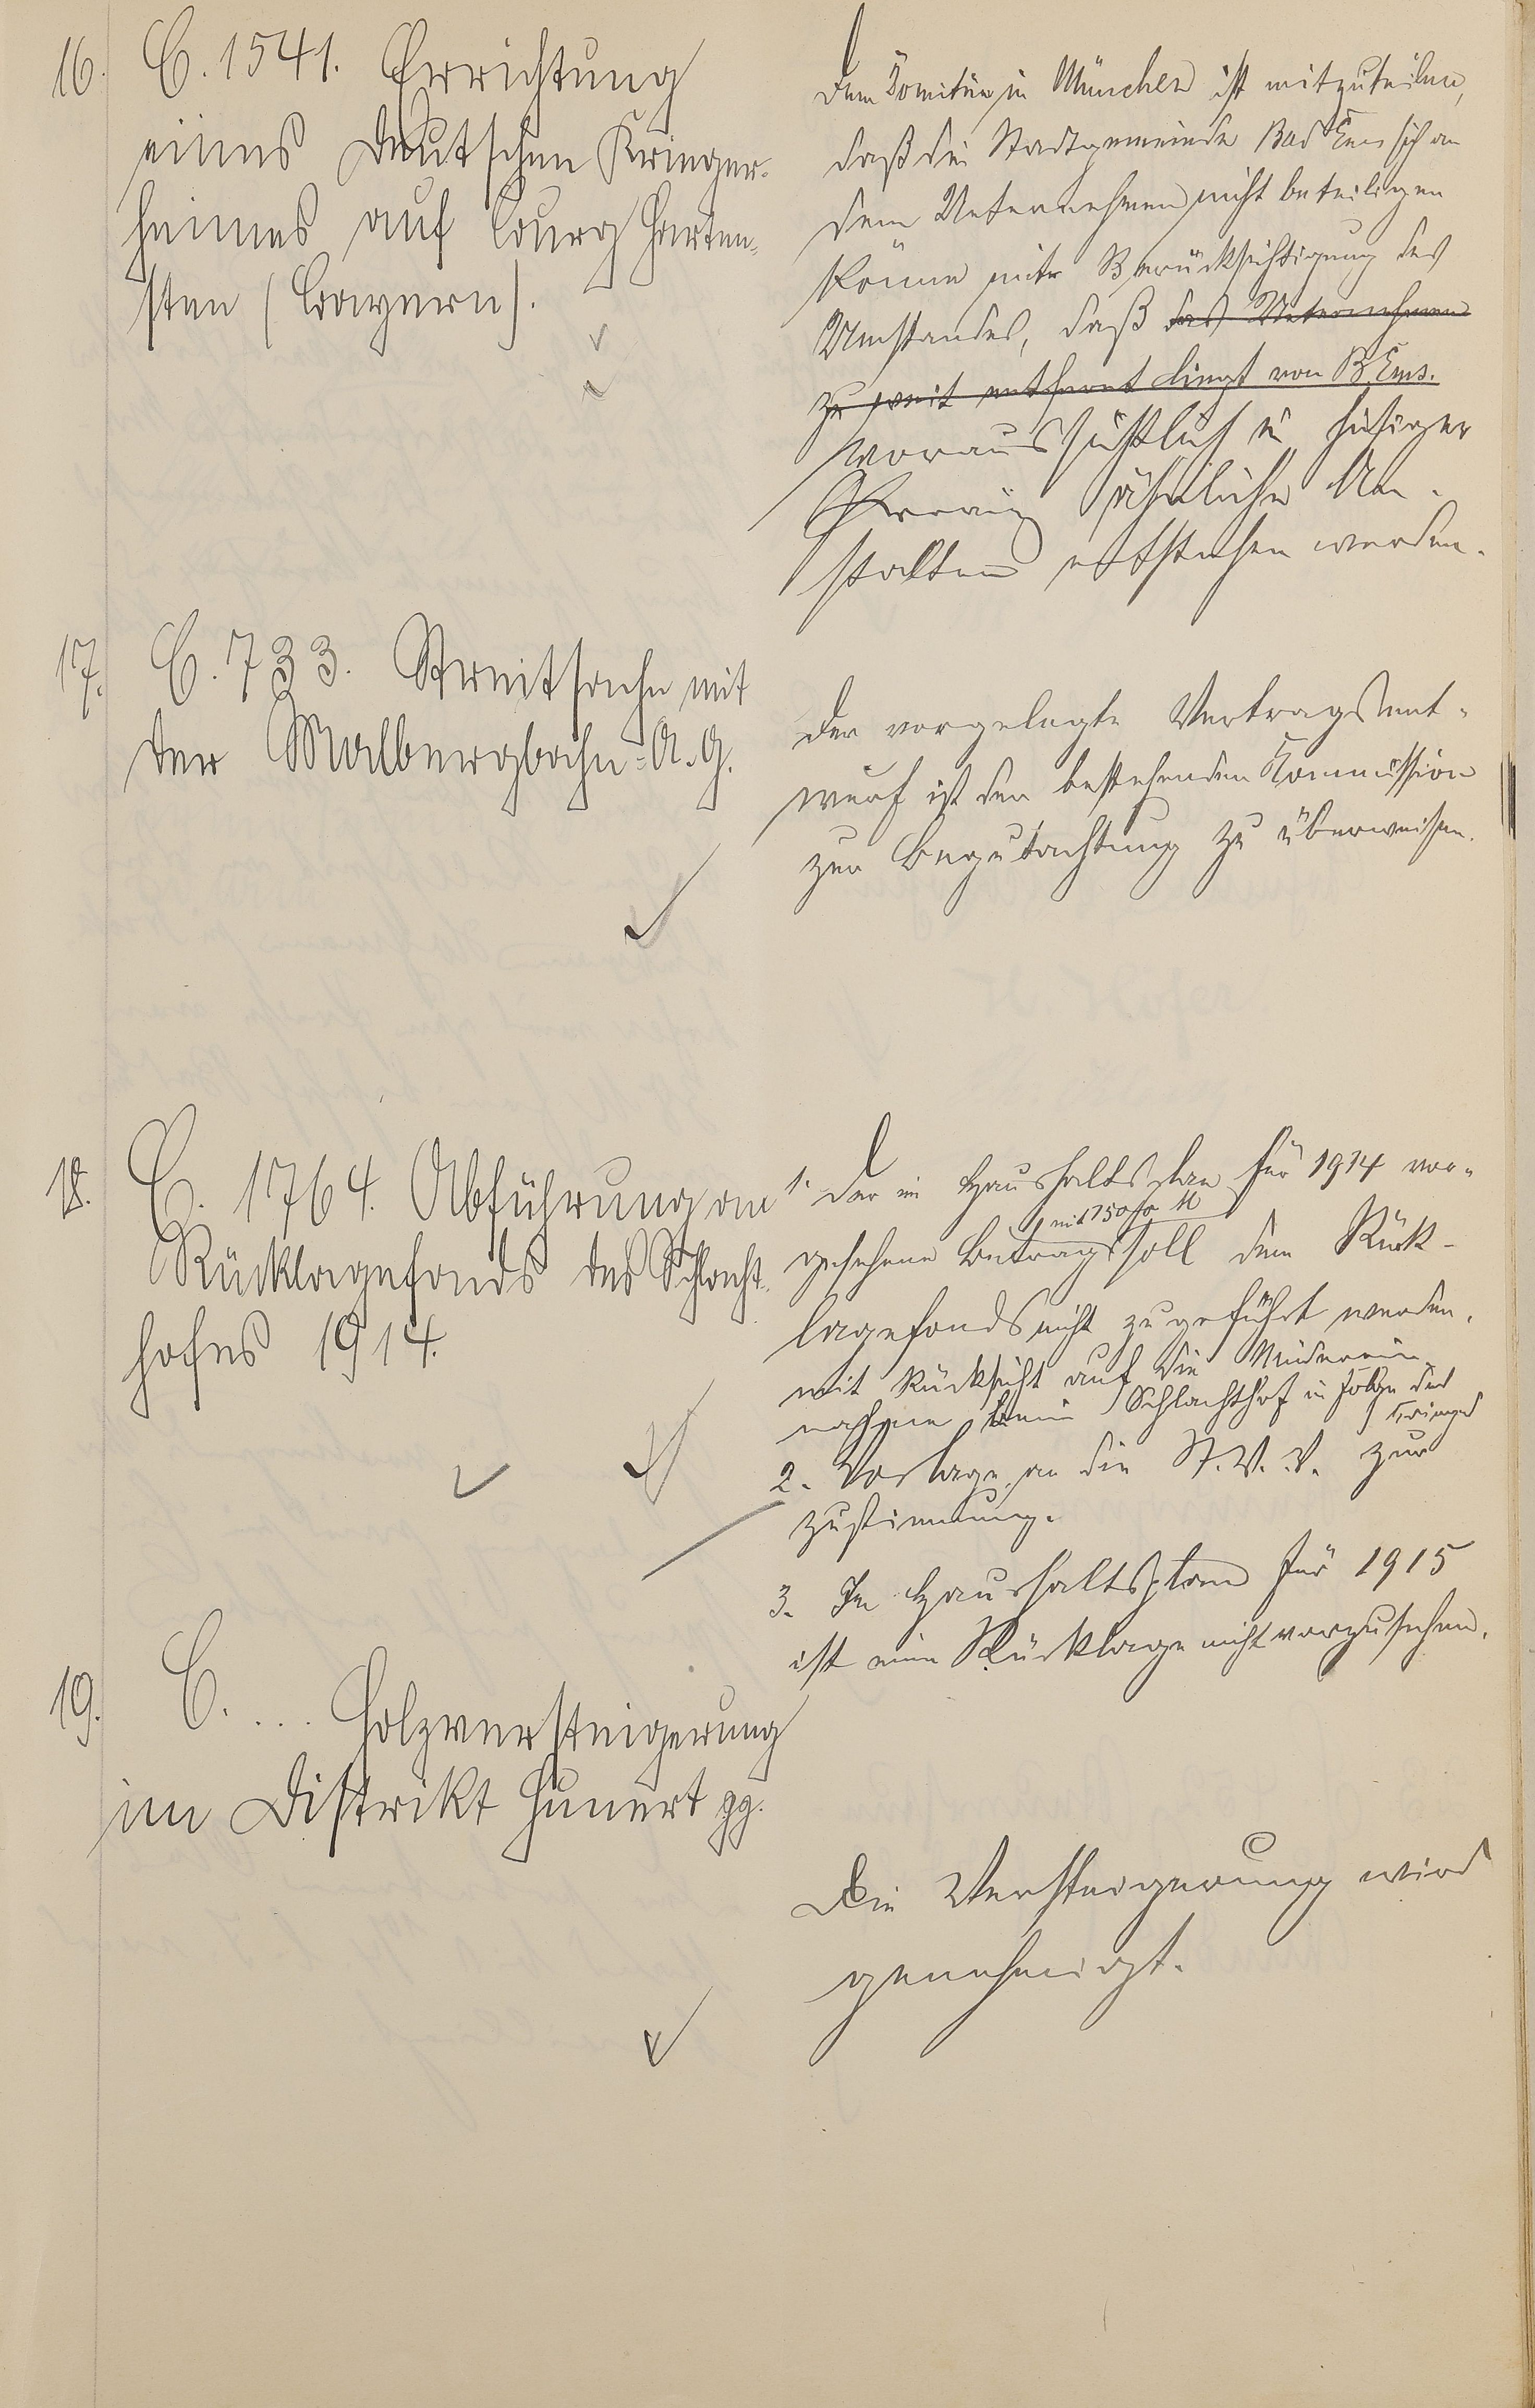 16. C. 1541. Errichtung
eines deutschen Krieger-
heimes auf Burg Harten-
sten (Bayern).
Dem Komitee in München ist mitzuteilen,
daß die Stadtgemeinde Bad Ems sich an
dem Unternehmen nicht beteiligen
könne mit Berücksichtigung des
Umstandes, daß das Unternehmen
zu weit entfernt liegt von B. Ems.
voraussichtlich in hiesiger
ähnliche An-
stalten entstehen werden.
17. C. 733. Streitsache mit
der Malbergbahn=A.G.
Der vorgelegte Vertragsent-
wurf ist der bestehenden Kommission
zur Begutachtung zu überweisen.
18. C. 1764. Abführung an
Rücklagefonds des Schlacht-
hofes 1914.
1. Der im Haushaltsplan für 1914 vor-
mit 750 M
gesehene Betrag soll dem Rück-
lagefonds nicht zugeführt werden,
mit Rücksicht auf die Minderein-
nahme beim Schlachthof in Folge des
Krieges
2. Vorlage an die St.V.V. zur
Zustimmung.
3. Im Haushaltsplan für 1915
ist eine Rücklage nicht vorzusehen.
19. C. ... Holzversteigerung
im Distrikt Hunert pp.
Die Versteigerung wird
genehmigt.